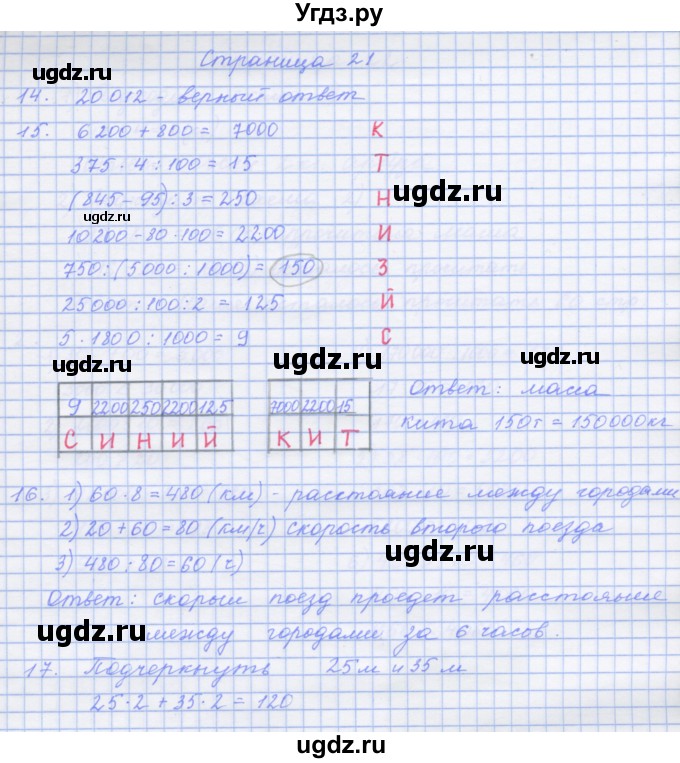 Угдз.ру
Страница 21
ugdz.ru ugdz.ru
14. 20 012 - верный ответ
15. 6 200 + 800 = 7000 К
375 · 4 : 100 = 15 Т
ugdz.ru
(845 - 95) : 3 = 250 Н
ugdz.ru
10 200 - 80 · 100 = 2200 И
750 : (5000 : 1000) = 150 З
25000 : 100 : 2 = 125 Й
5 · 1800 : 1000 = 9 С
ugdz.ru ugdz.ru
9 2200 250 2200 125 7000 2200 15 Ответ: масса
С И Н И Й К И Т кита 150т = 150000кг
ugdz.ru
16. 1) 60 · 8 = 480 (км) - расстояние между городами
2) 20 + 60 = 80 (км/ч) скорость второго поезда
ugdz.ru
3) 480 : 80 = 60 (ч)
Ответ: скорый поезд проедет расстояние
ugdz.ru
между городами за 6 часов.
ugdz.ru
17. Подчеркнуть 25 м и 35 м
25 · 2 + 35 · 2 = 120
ugdz.ru